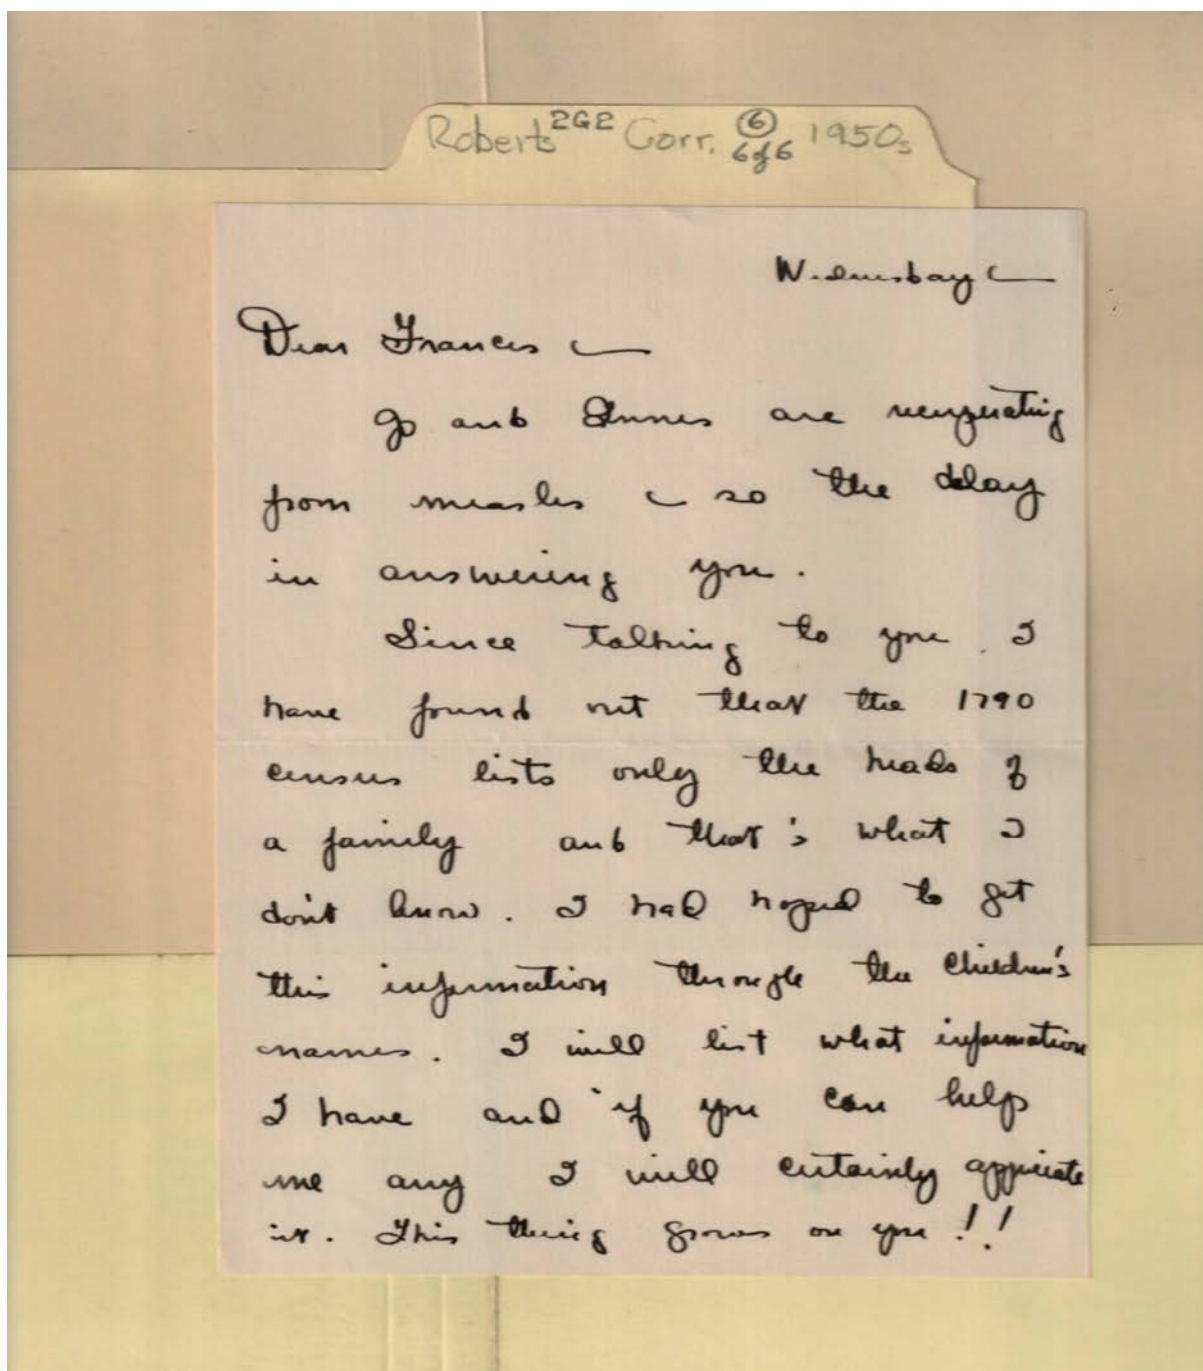 Roberts 2G2 Corr. 6 1950s
6 of 6
Wednesday —
Dear Frances —
Jo and are recuperating
from measles — so the delay
in answering you.
Since talking to you I
have found out that the 1790
census lists only the heads of
a family and that's what I
don't know. I had hoped to get
this information through the Children's
names. I will list what information
I have and if you can help
me any I will certainly appreciate
it. This thing grows on you!!